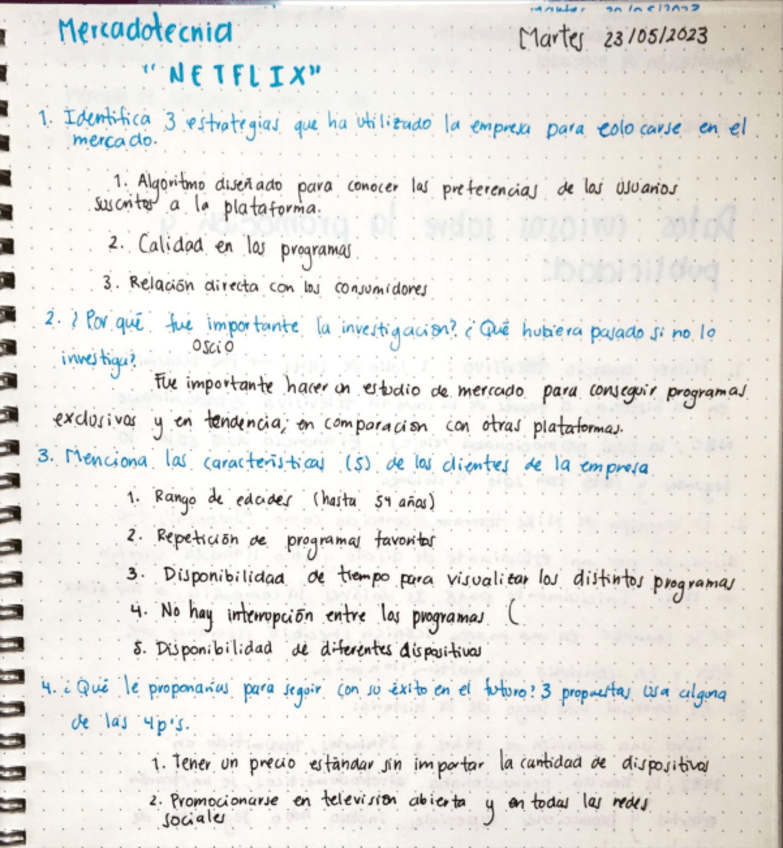 Mercadotecnia
Martes 23/05/2023
"NETFLIX"
1. Identifica 3 estrategias que ha utilizado la empresa para colocarse en el
mercado.
1. Algoritmo diseñado para conocer las preferencias de los usuarios
suscritos a la plataforma.
2. Calidad en los programas
3. Relación directa con los consumidores
2. ¿Por qué fue importante la investigación? ¿Qué hubiera pasado si no lo
investiga?
oscio
Fue importante hacer un estudio de mercado para conseguir programas
exclusivos y en tendencia, en comparación con otras plataformas.
3. Menciona las características (5) de los clientes de la empresa
1. Rango de edades (hasta 54 años)
2. Repetición de programas favoritos
3. Disponibilidad de tiempo para visualizar los distintos programas.
4. No hay interrupción entre los programas (
5. Disponibilidad de diferentes dispositivos
4. ¿Qué le propondrías para seguir con su éxito en el futuro? 3 propuestas usa alguna
de las 4p's.
1. Tener un precio estándar sin importar la cantidad de dispositivos
2. Promocionarse en televisión abierta y en todas las redes
sociales